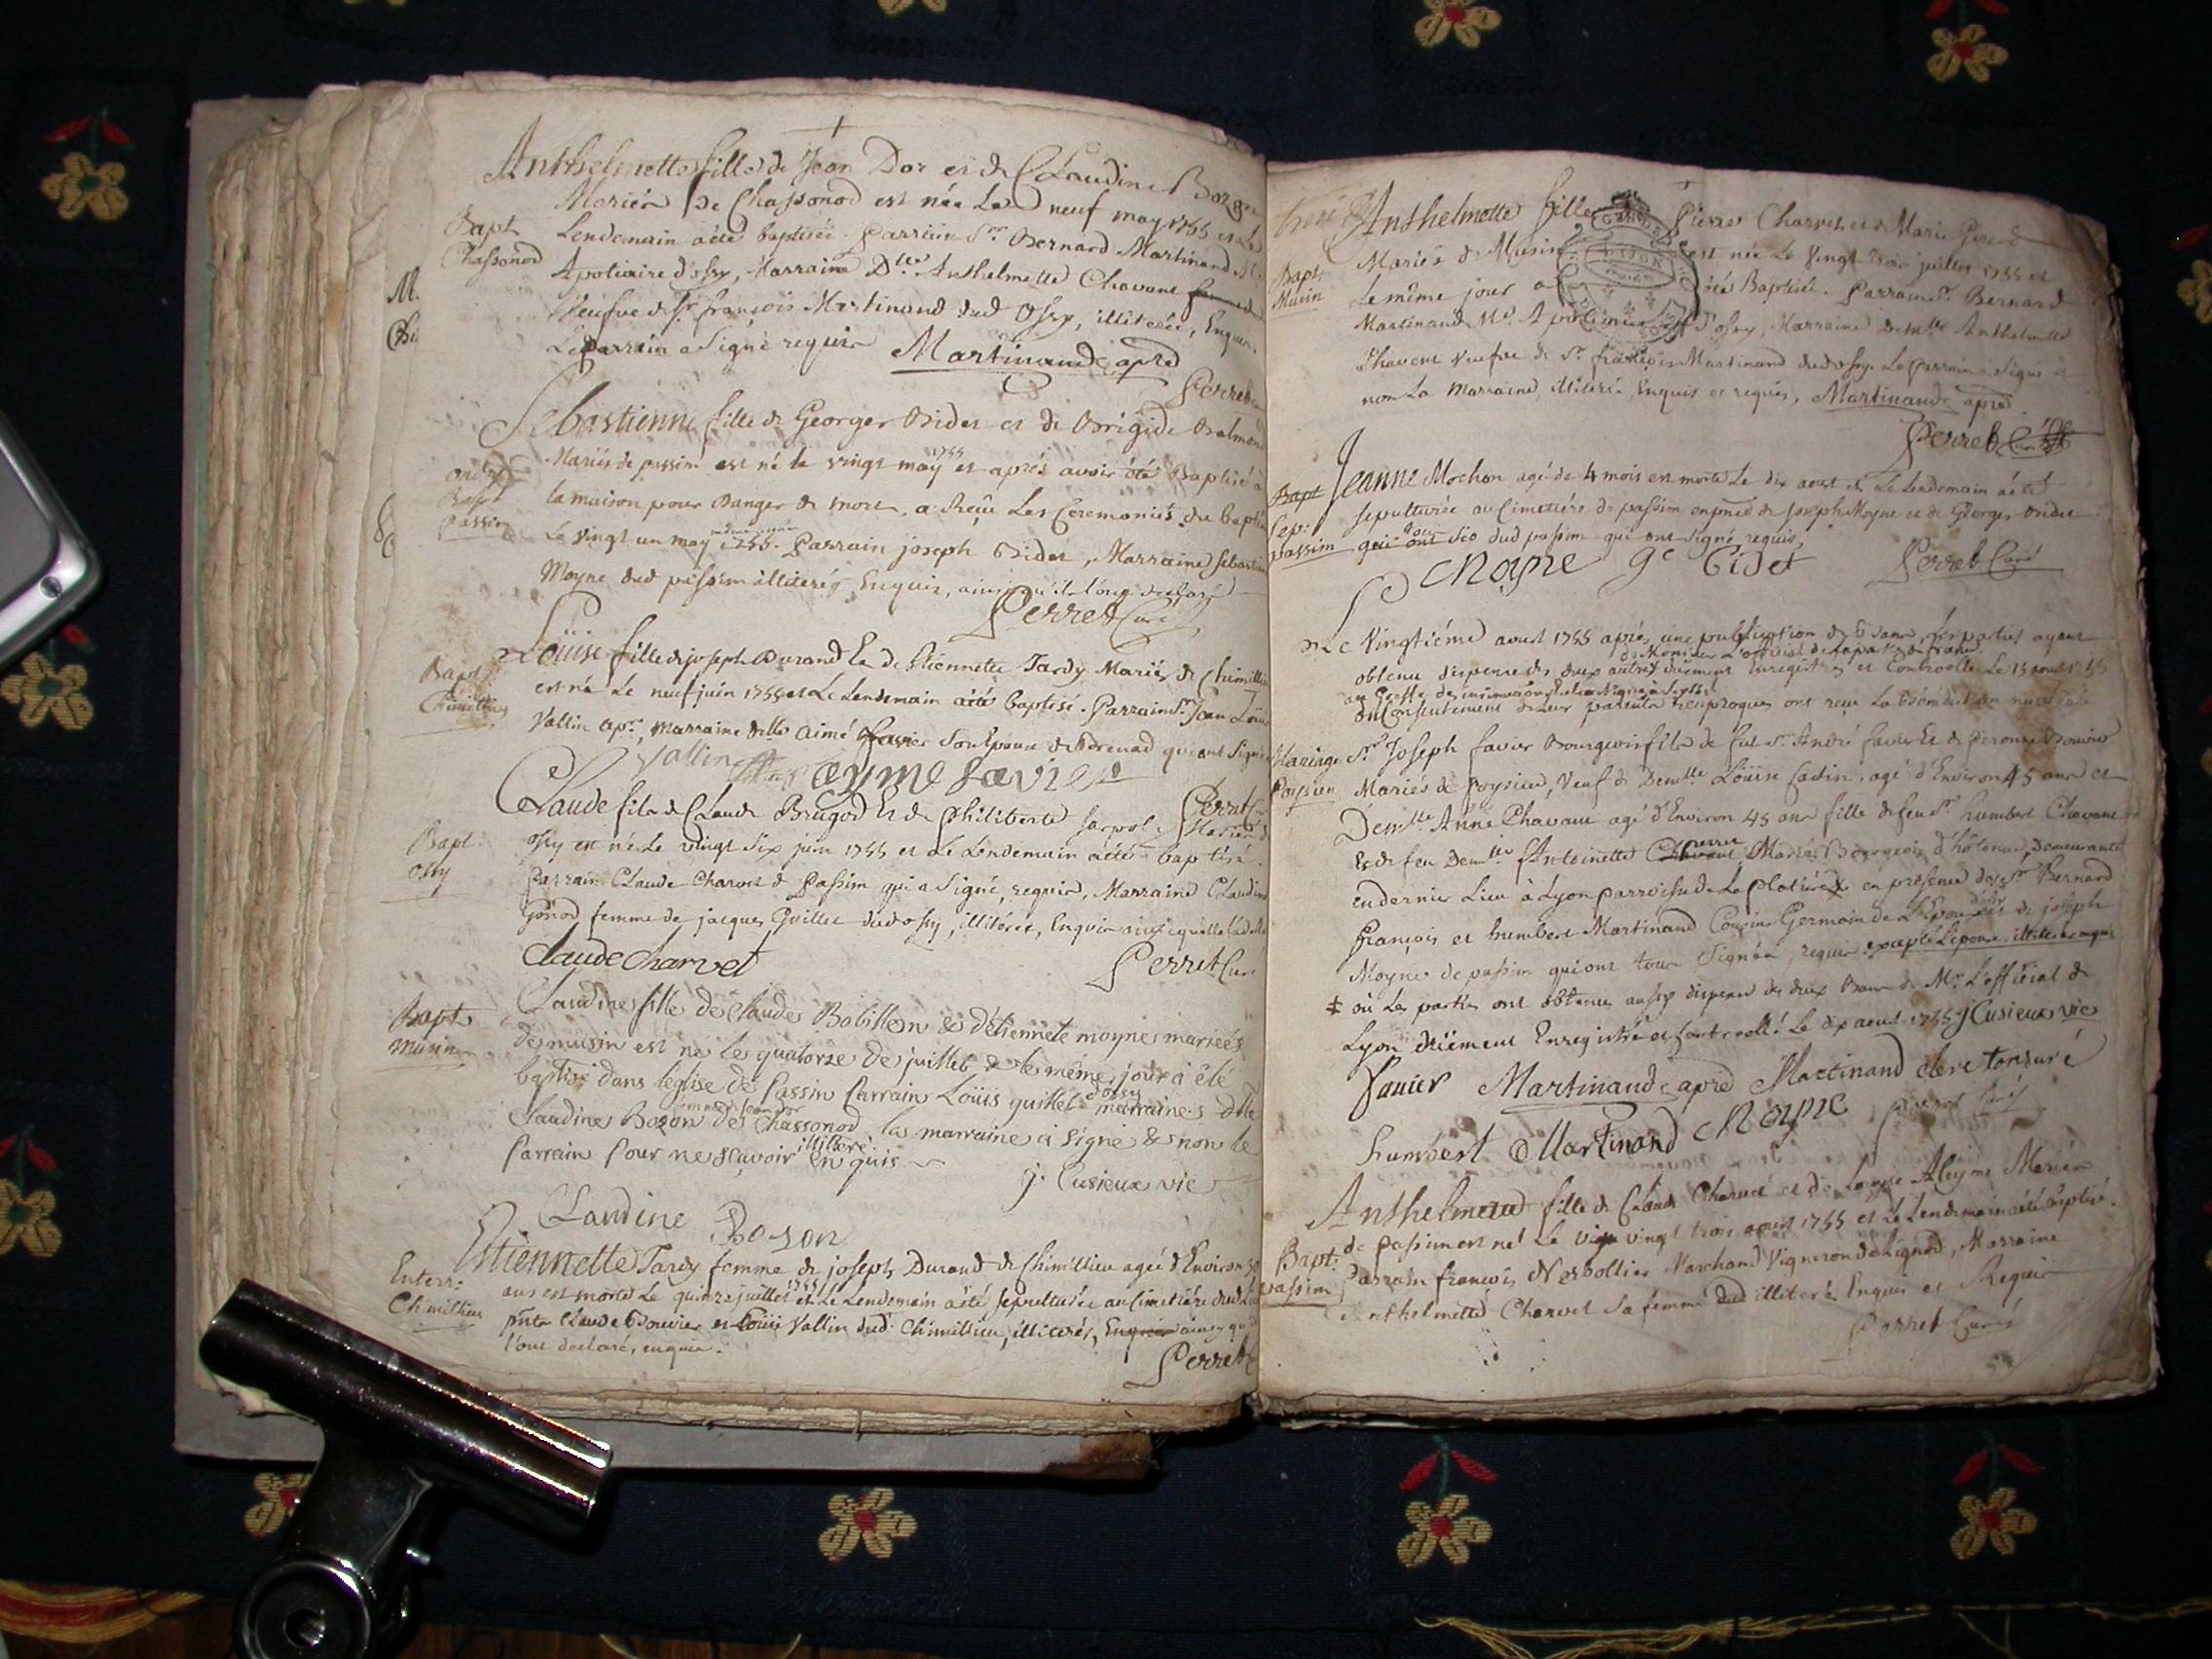 Anthelmette fille de Jean Dor et de Claudine
Mariés de Chassonod est née le neuf may 1755 et Le
Bapt
Chassonod
Lendemain a été baptisée. Parrain Sr. Bernard Martinand
Apoticaire d'ossy, Marraine Dlle Anthelmette Chavent
Veufve de Sr. françois Martinand dud Ossy, illiterée, Enquise
Le parrain a Signé requis Martinand apre
Perret
Sebastienne fille de George Bidet et de Brigide
Mariés de passin est né le vingt may 1755 et aprés avoir été Baptisé à
Bapt
Passin
la maison pour danger de mort, a Reçu Les Ceremonies du baptême
Le Vingt un may 1755. Parrain joseph Bidet, Marraine
Moyne dud passin illiterés Enquis,
Perret Curé
Loüise fille de joseph Durand Et de Etiennette Tardy Mariés de Chimillieu
Bapt
Chimillieu
est né Le neuf juin 1755 et Le Lendemain a été baptisé. Parrain Sr. Jean Loüis
Vallin apre, Marraine dlle Aimé favier Son Epouse qui ont Signé
Vallin ayme favier
Perret
Claude fils de Claude Brugod Et de Philiberte Mariés
Bapt
ossy
ossy est né Le Vingt Six juin 1755 et Le Lendemain a été baptisé.
Parrain Claude Charvet de Passin qui a Signé, requis, Marraine Claudine
Gonod femme de jacques Guillet dud ossy, illiterée, Enquise
Claude Charvet
Perret Curé
Claudine fille de Claude Bobillon & d'étiennete moyne mariés
Bapt
musin
de musin est né le quatorze de juillet & le même jour a été
baptisé dans leglise de Passin Parrain Loüis guillet d'ossy marraine
Claudine Bozon femme jean dor de Chassonod la marraine a signé & non le
Parrain Pour ne sçavoir illiteré Enquis
j. Cusieux vic
Claudine Bozon
Etiennette Tardy femme de joseph Durand de Chimillieu agée d'Environ
Enterr:
Chimillieu
ans est morte Le quinze juillet 1755 et Le Lendemain a été sepulturée au Cimetière
Claude Bouvier et Loüis Vallin dud. Chimillieu, illiterés,
l'ont declaré, enquis.
Perret
Anthelmette fille Pierre Charvet et Marie
Bapt
Musin
Mariés de Musin est née Le Vingt trois juillet 1755 et
Le même jour a été Baptisée. Parrain Sr. Bernard
Martinand Md. Apoticaire d'ossy, Marraine Demlle Anthelmette
Chavent Veufve de Sr. françois Martinand dud ossy. Le parrain a Signé et
non La Marraine, illiteré, Enquis et requis, Martinand apre
Perret Curé
Jeanne Mochon agé de 4 mois est morte Le dix aoust et Le Lendemain a été
Bapt
Sep:
passim
sepulturée au Cimetière de passim en presence de Joseph Moyne et de George Bidet
dud passim qui ont signé requis,
Moyne ge Bidet Perret Curé
Le Vingtième aoust 1755 après une publication de bans, Les parties ayant
obtenu dispense des deux autres düement Enregistrée et Controllée Le 15 aout 1755
de Monsieur L'official
du Consentement de Leur parents reciproques ont reçu La Benediction nuptiale
Mariage
Poysieu
Sr. Joseph favier Bourgeois fils de feu Sr. André favier Et de Peronne Bouvier
Mariés de Poysieu, Veuf de Demlle Loüise agé d'Environ 45 ans et
Demlle Anne Chavant agé d'Environ 45 ans fille de feu Sr. humbert Chavant
et de feu Demlle Antoinette Mariés Bourgeois d'hôtenne, Demeurante
en dernier Lieu à Lyon parroisse de La platière en presence des Sr. Bernard
françois et humbert Martinand Cousins Germain de L'Epouse et de joseph
Moyne de passim qui ont tous Signés, requis excepté L'epouse illiterée enquise
‡ où Les parties ont obtenu aussy dispense des deux Bans de Mr. L'official de
Lyon düement Enregistré et Controllé Le dix aout 1755 j Cusieux vic
favier Martinand apre Martinand clerc tonsuré
humbert Martinand Moyne Perret Curé
Anthelmette fille de Claude Charvet et de Mariés
Bapt:
passim
de passim est né Le vingt trois aoust 1755 et Le Lendemain a été baptisé.
Parrain françois Marchand Vigneron de Lignod, Marraine
Anthelmette Charvet Sa femme dud illiterés Enquis et Requis
Perret Curé